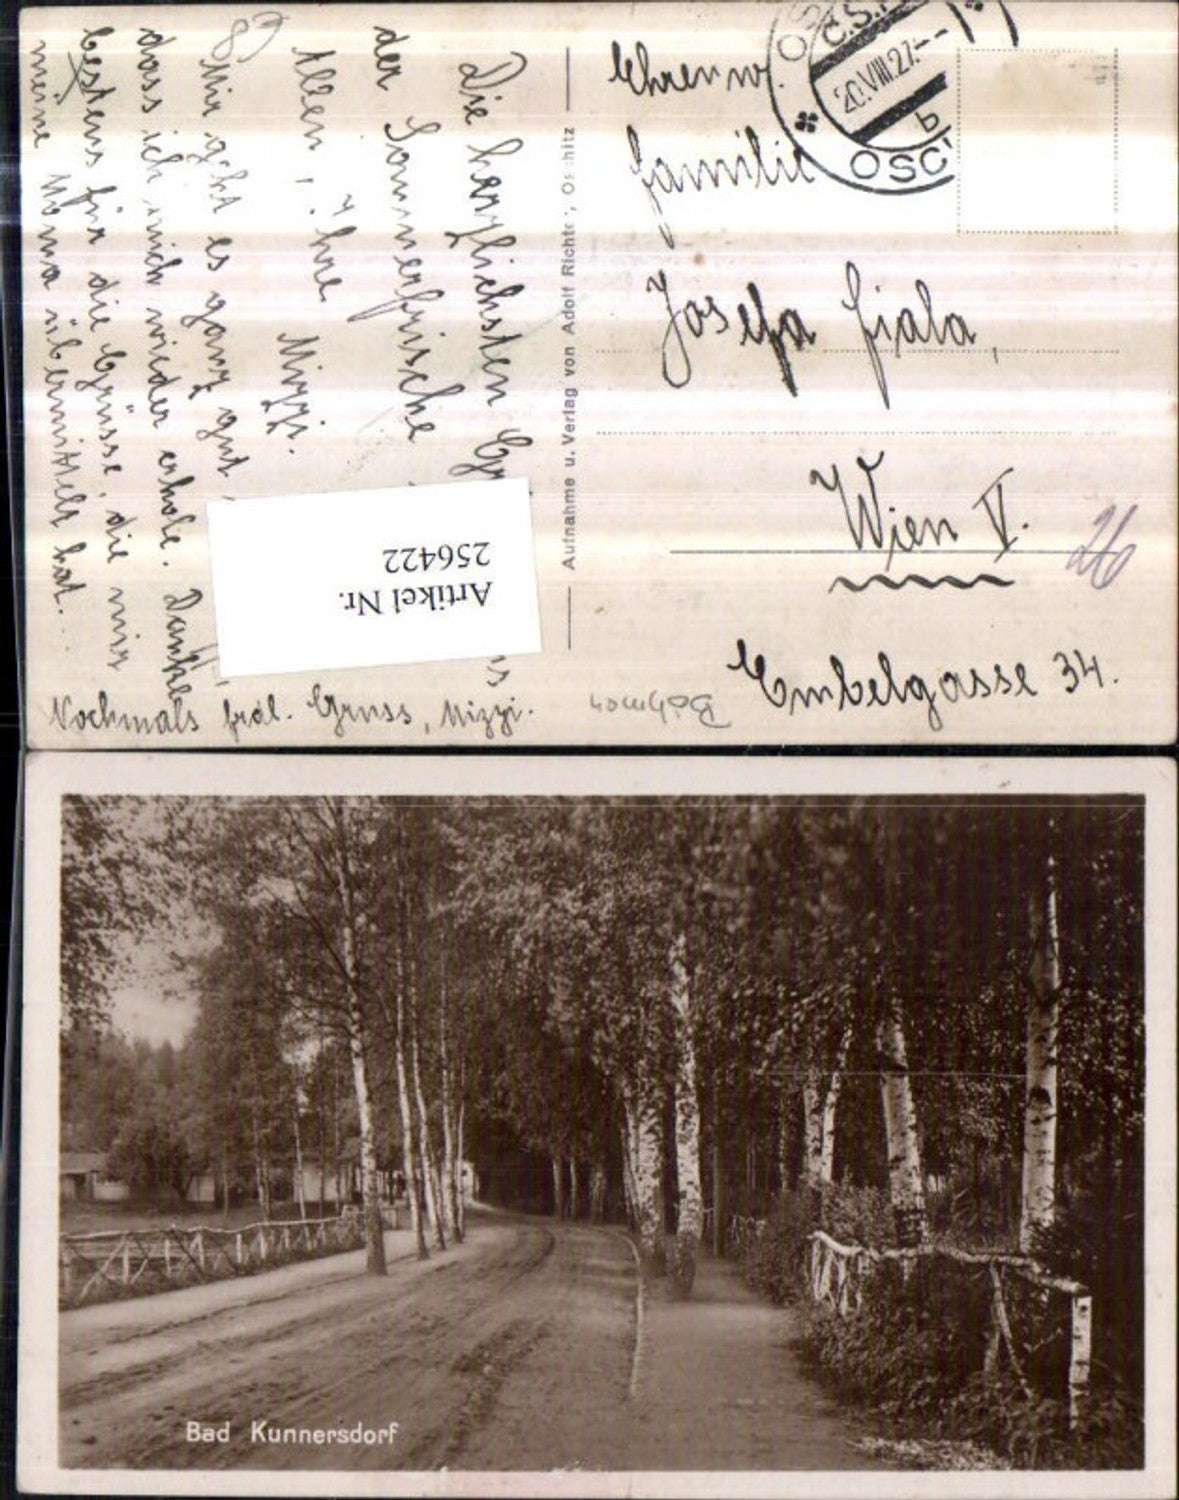 Die herzlichsten Grüsse aus
der Sommerfrische
Allen, Ihre Mizzi.
Mir geht es ganz gut,
dass ich mich wieder erhole. Danke
bestens für die Grüsse, die mir
meine Mama übermittelt hat.
Nochmals frdl. Gruss, Mizzi.
Artikel Nr.
256422
Aufnahme u. Verlag von Adolf Richter, Oschitz
Č.S.
20.VIII.27
b
OSC
Ehrenw.
Familie
Josefa Fiala,
Wien V.
Embelgasse 34.
26
Böhmen
Bad Kunnersdorf